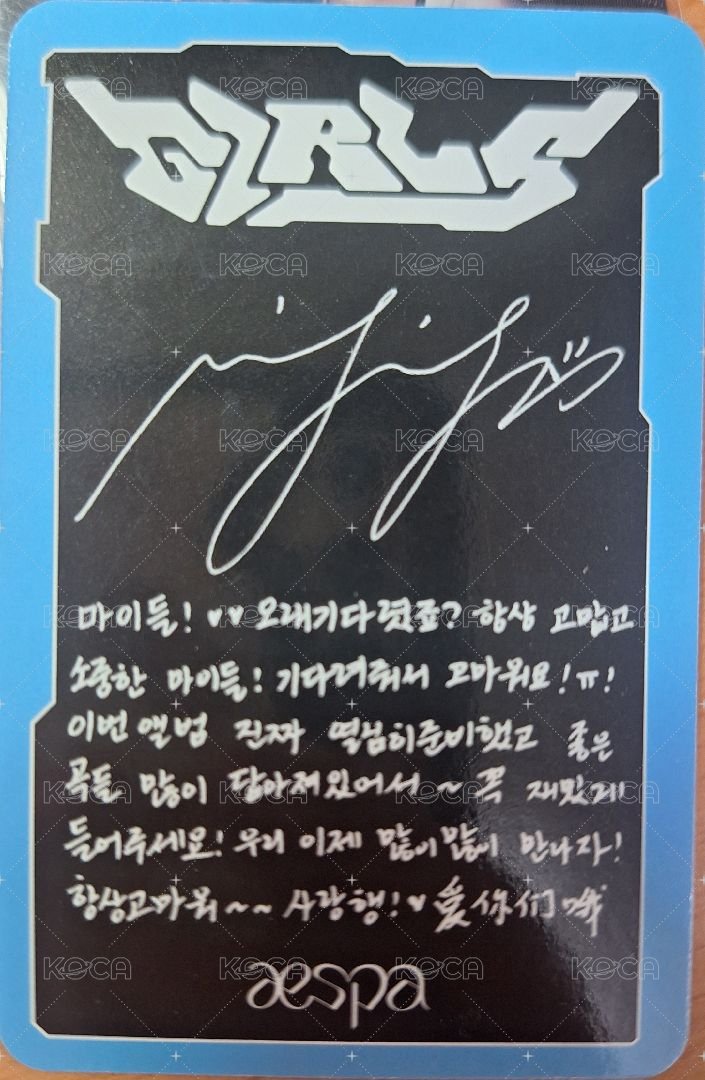 GIRLS
마이들! ♥♥ 오래기다렸죠? 항상 고맙고
소중한 마이들! 기다려줘서 고마워요!ㅠ!
이번 앨범 진짜 열심히준비했고 좋은
곡들 많이 담아져있어서~ 꼭 재밌게
들어주세요! 우리 이제 많이많이 만나자!
항상고마워~~ 사랑행!♥ 爱你们哦
aespa
KOCA